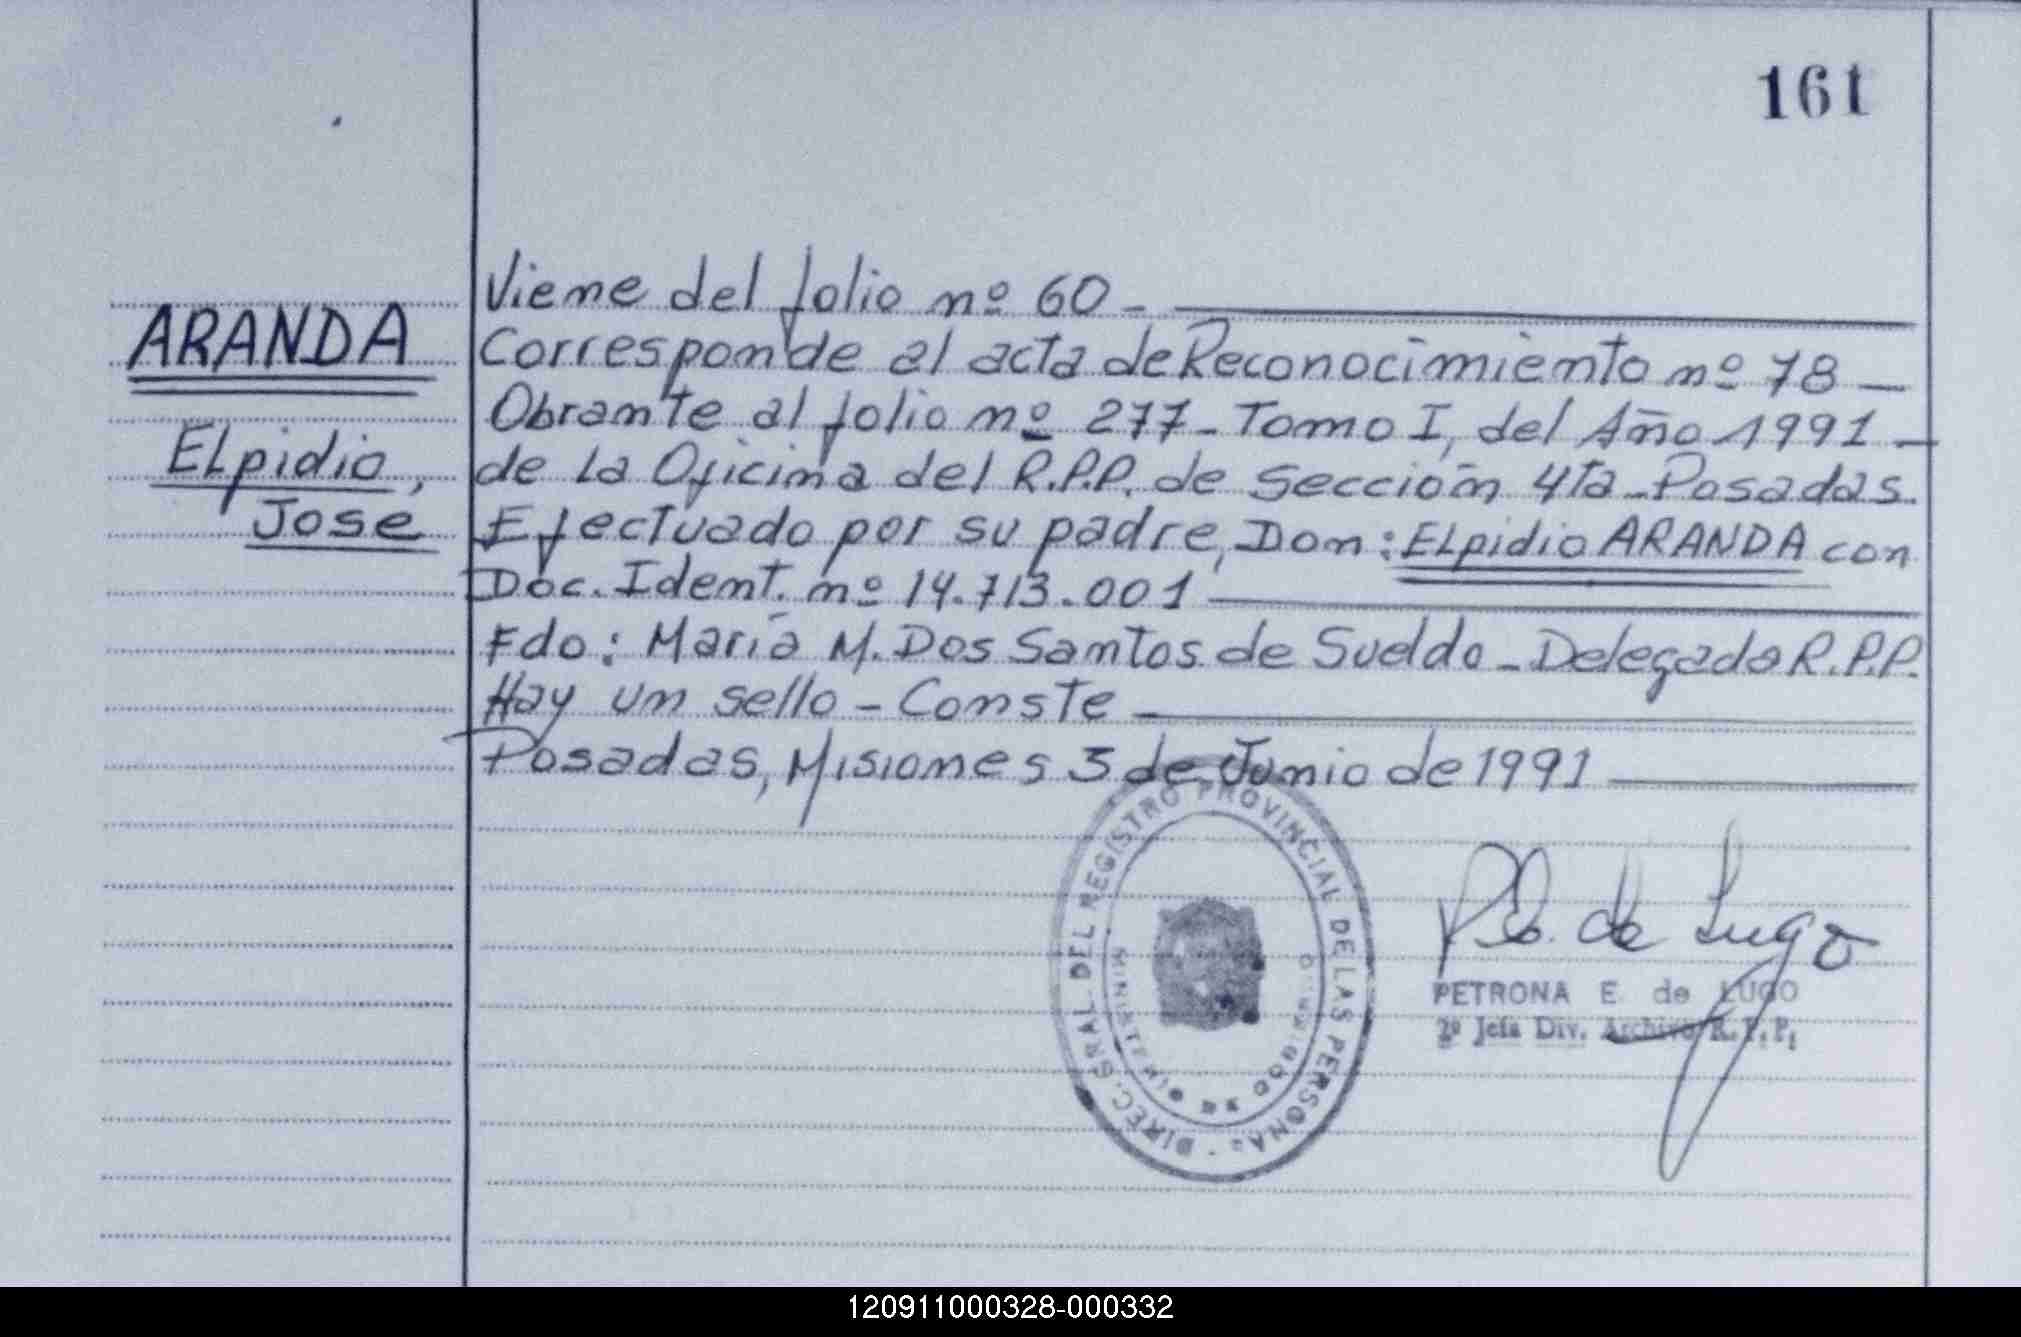 161
ARANDA
ELpidio,
Jose
Viene del folio nº 60 -
Corresponde al acta de Reconocimiento nº 78 -
Obrante al folio nº 277 - Tomo I, del Año 1991 -
de la Oficina del R.P.P. de Sección 4ta - Posadas.
Efectuado por su padre, Don: ELpidio ARANDA con
Doc. Ident. nº 14.713.001
Fdo: María M. Dos Santos de Sueldo - Delegada R.P.P.
Hay un sello - Conste -
Posadas, Misiones 3 de Junio de 1991
DIREC. GRAL DEL REGISTRO PROVINCIAL DE LAS PERSONAS
MINISTERIO DE GOBIERNO
P.E. de Lugo
PETRONA E. de LUGO
2º Jefa Div. Archivo R.P.P.
120911000328-000332